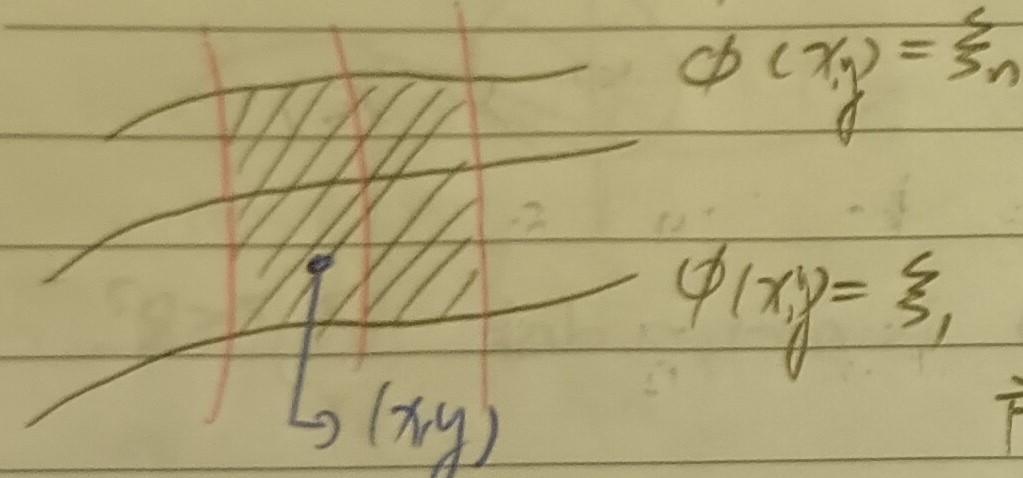 ϕ(x,y) = ξₙ
ϕ(x,y) = ξ₁
(x,y)